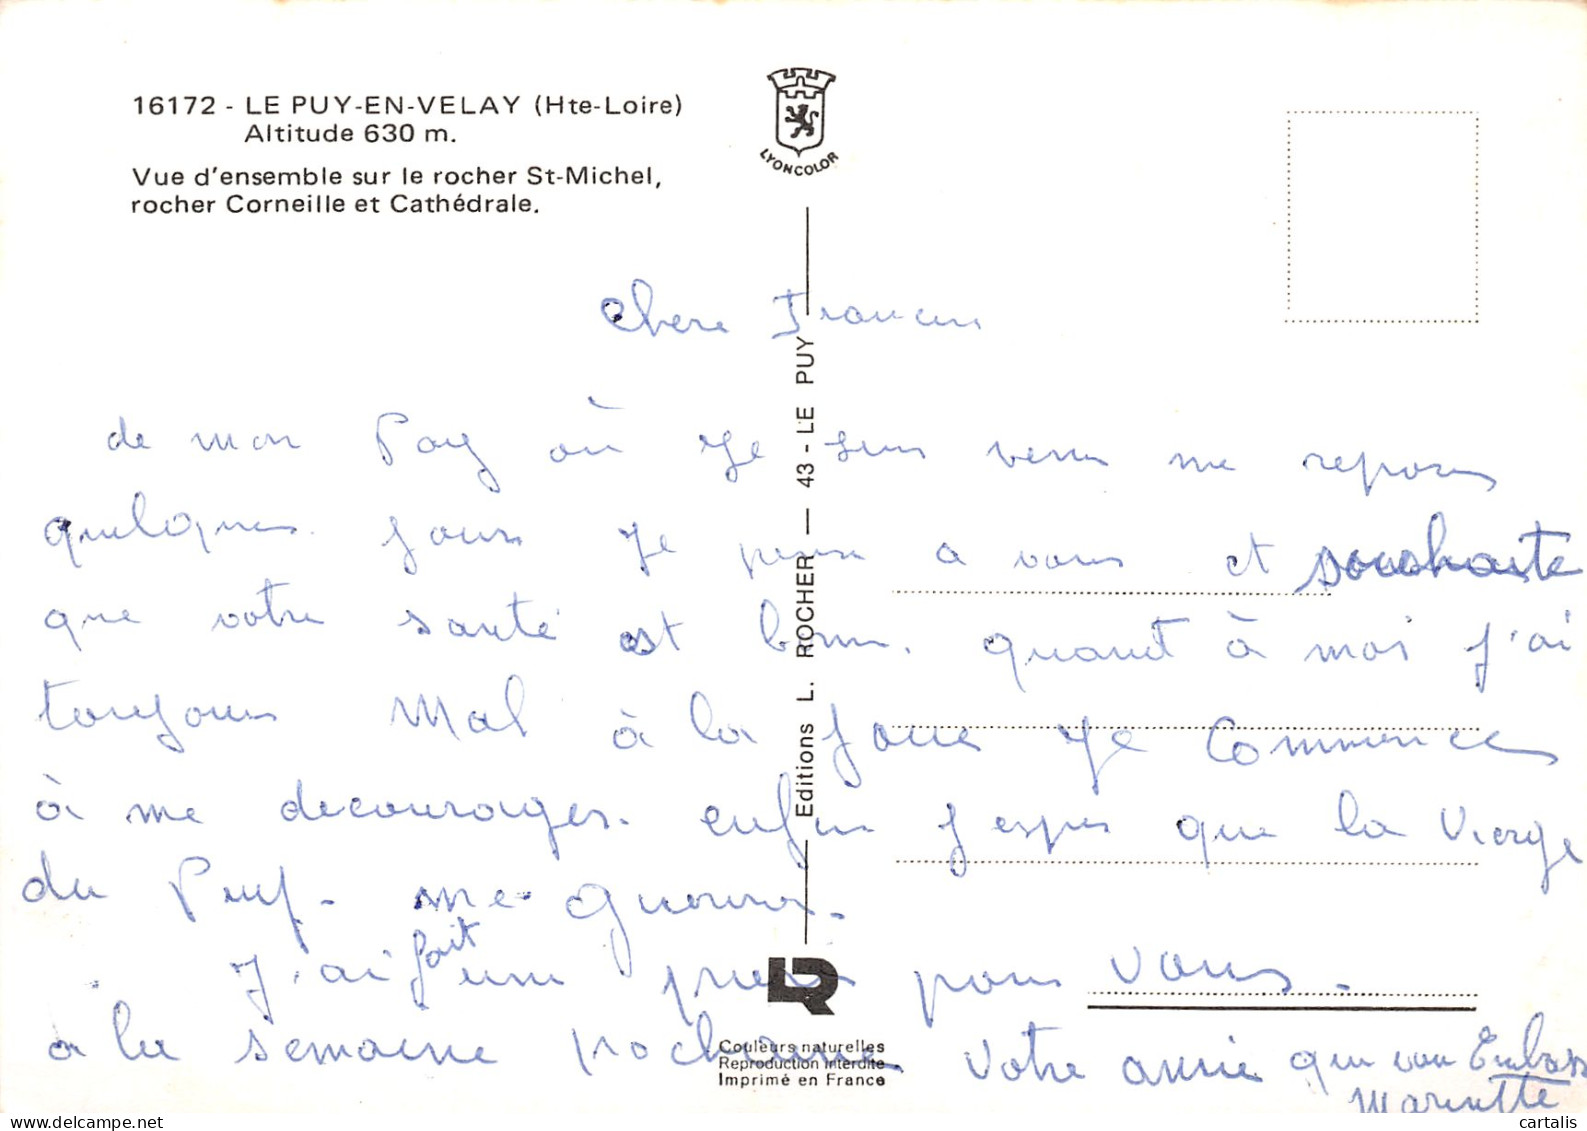 16172 - LE PUY-EN-VELAY (Hte-Loire)
Altitude 630 m.
Vue d'ensemble sur le rocher St-Michel,
rocher Corneille et Cathédrale.
LYONCOLOR
Editions L. ROCHER — 43 - LE PUY
chere
de mon Pay où Je suis venu me reposer
quelques jours je pense a vous et souhaite
que votre santé est bonne. quant à moi j'ai
toujours Mal à la joue Je commence
à me decourager. enfin j'espere que la Vierge
du Puy. me
J'ai fait une priere pour vous.
à la semaine prochaine. Votre amie qui vous Embrasse
LR
Couleurs naturelles
Reproduction interdite
Imprimé en France
cartalis